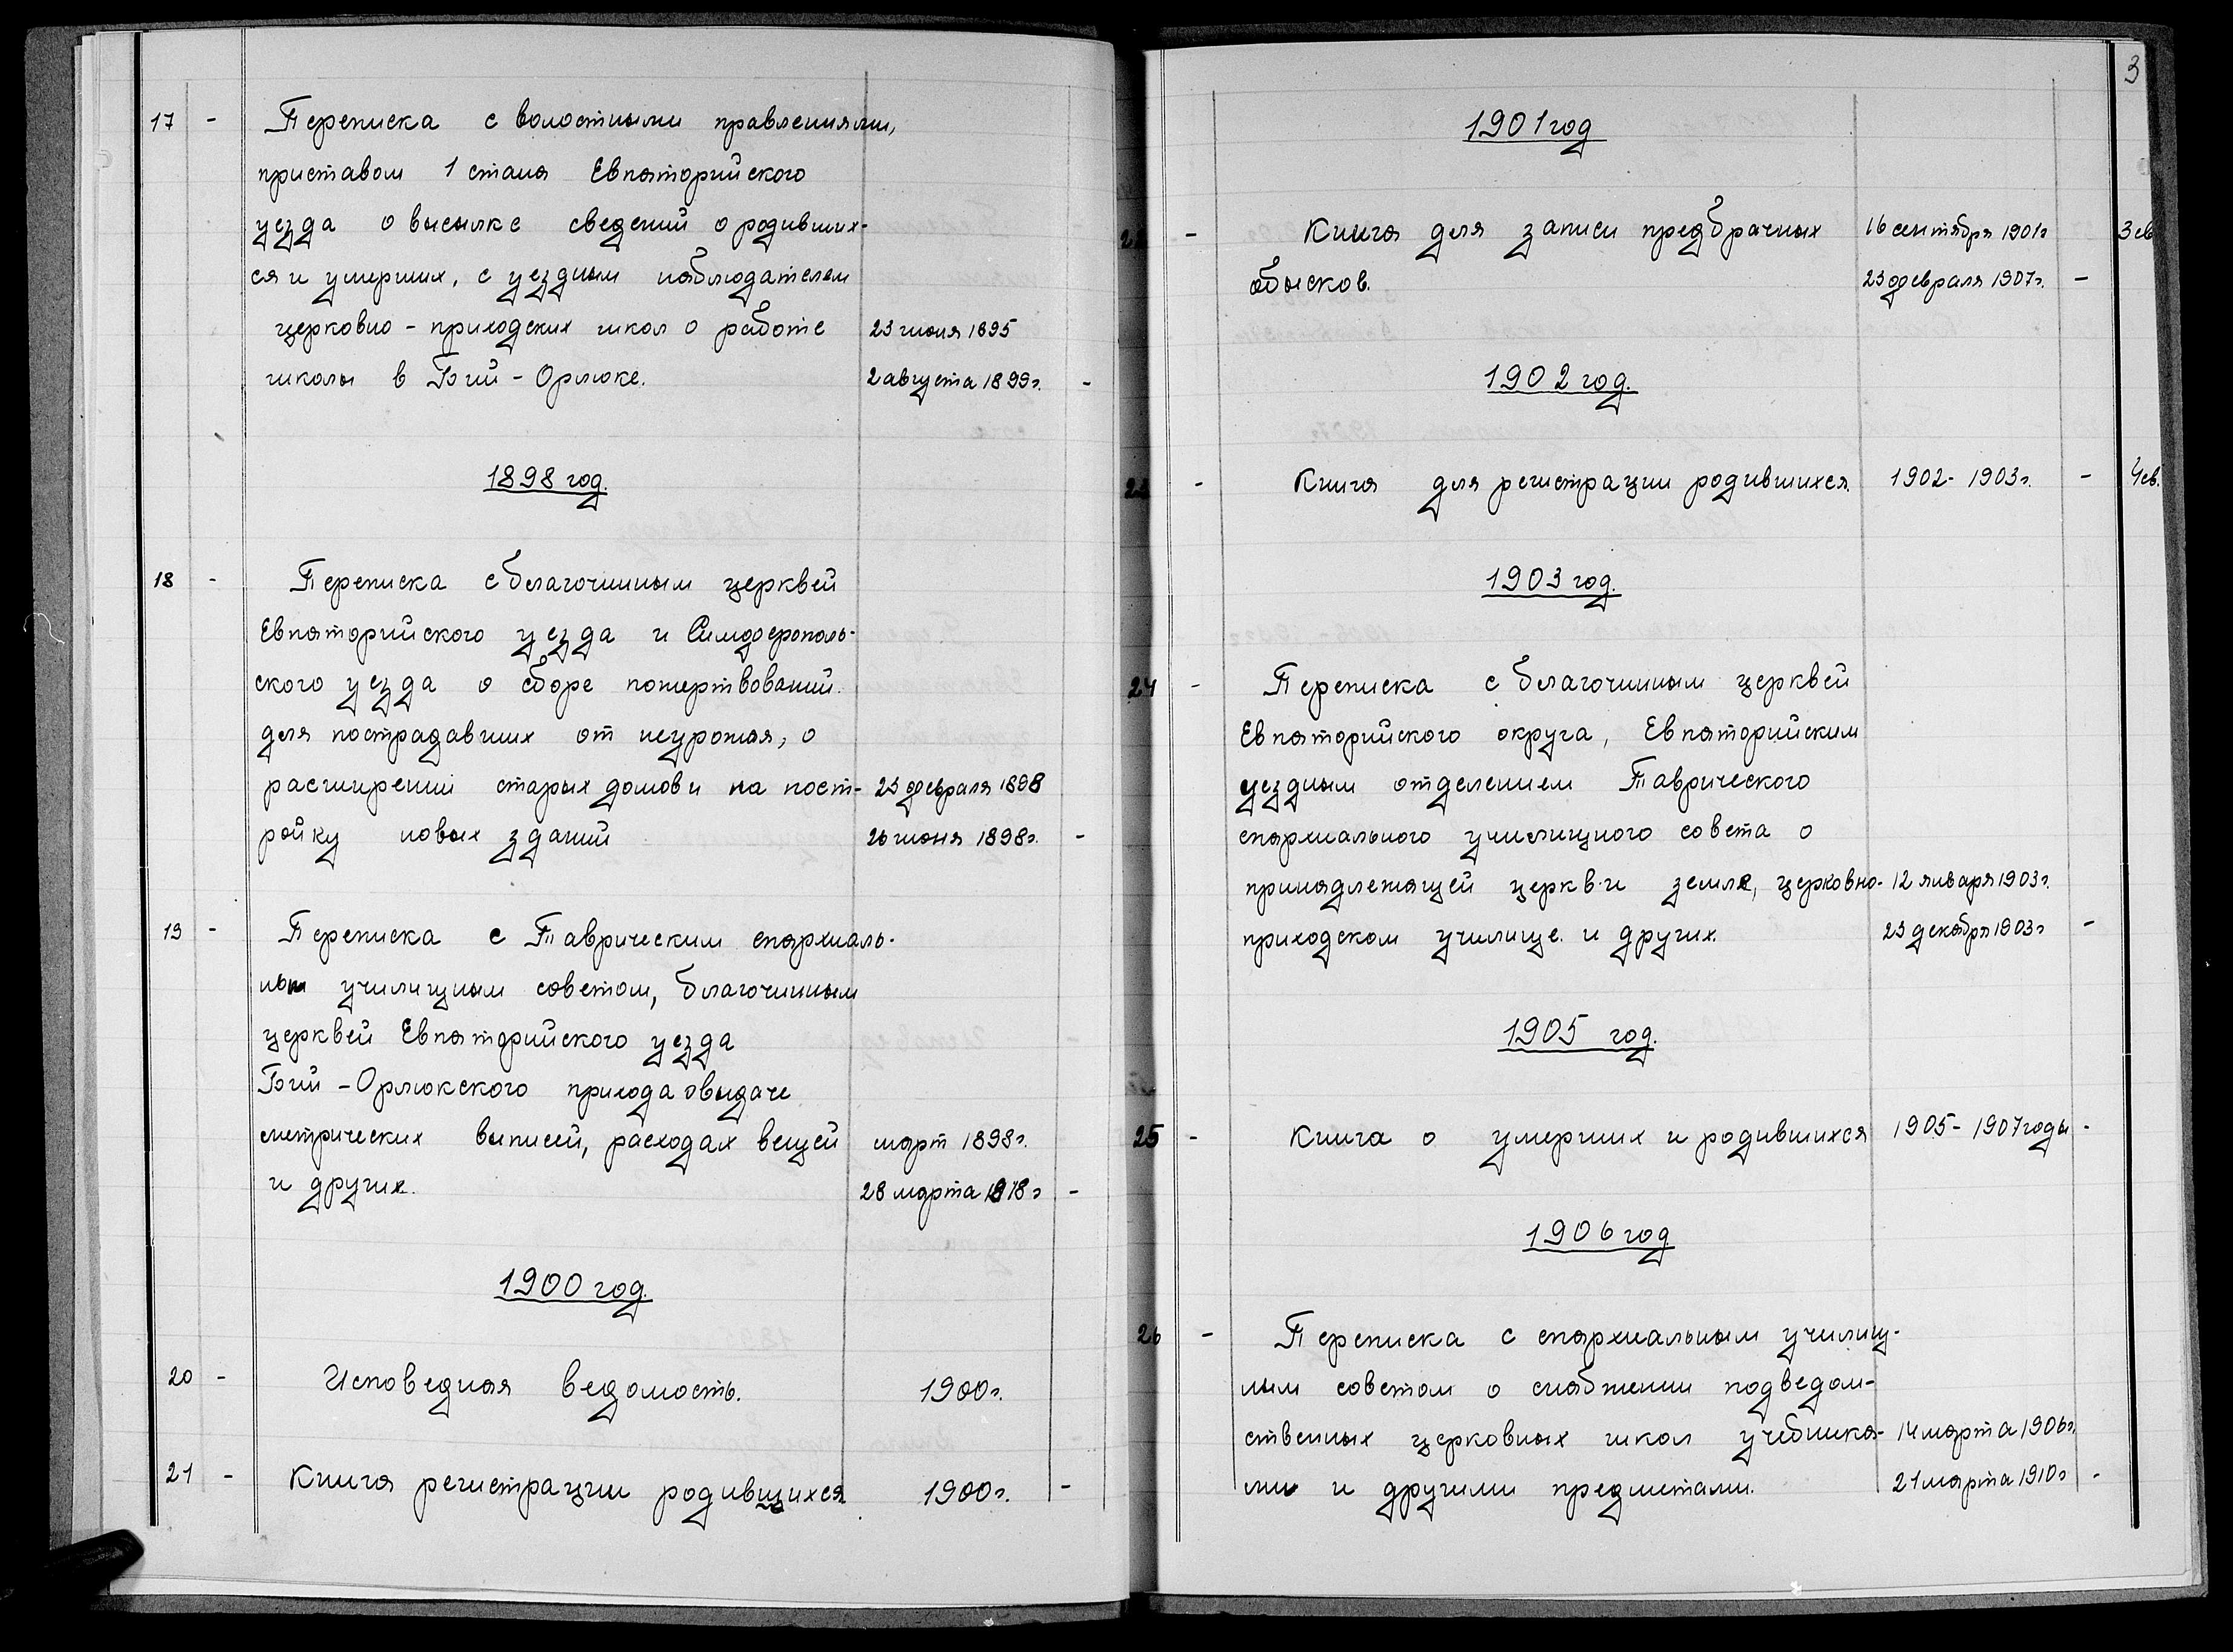 17 - Переписка с волостными правлениями,
приставом 1 стана Евпаторийского
уезда о высылке сведений о родивших-
ся и умерших, с уездным наблюдателем
церковно-приходских школ о работе 23 июня 1895
школы в Бий-Орлюке. 2 августа 1899г. -
1898 год.
18 - Переписка с благочинным церквей
Евпаторийского уезда и Симферополь-
ского уезда о сборе пожертвований
для пострадавших от неурожая, о
расширении старых домов и на пост- 23 февраля 1898
ройку новых зданий 20 июня 1898г. -
19 - Переписка с Таврическим епархиаль-
ным училищным советом, благочинным
церквей Евпаторийского уезда
Бий-Орлюкского прихода о выдаче
метрических выписей, расходах вещей март 1898г.
и других. 28 марта 1918г -
1900 год.
20 - Исповедная ведомость. 1900г.
21 - Книга регистрации родившихся 1900г. -
3
1901 год
- Книга для записи предбрачных 16 сентября 1901г 3св
обысков. 23 февраля 1907г. -
1902 год.
23 - Книга для регистрации родившихся. 1902-1903г. - 4св.
1903 год.
24 - Переписка с благочинным церквей
Евпаторийского округа, Евпаторийским
уездным отделением Таврического
епархиального училищного совета о
принадлежащей церкви земле, церковно- 12 января 1903г.
приходском училище и других. 23 декабря 1903г -
1905 год.
25 - Книга о умерших и родившихся 1905-1907 годы -
1906 год
26 - Переписка с епархиальным училищ-
ным советом о снабжении подведом-
ственных церковных школ учебника- 14 марта 1906г.
ми и другими предметами. 21 марта 1910г -